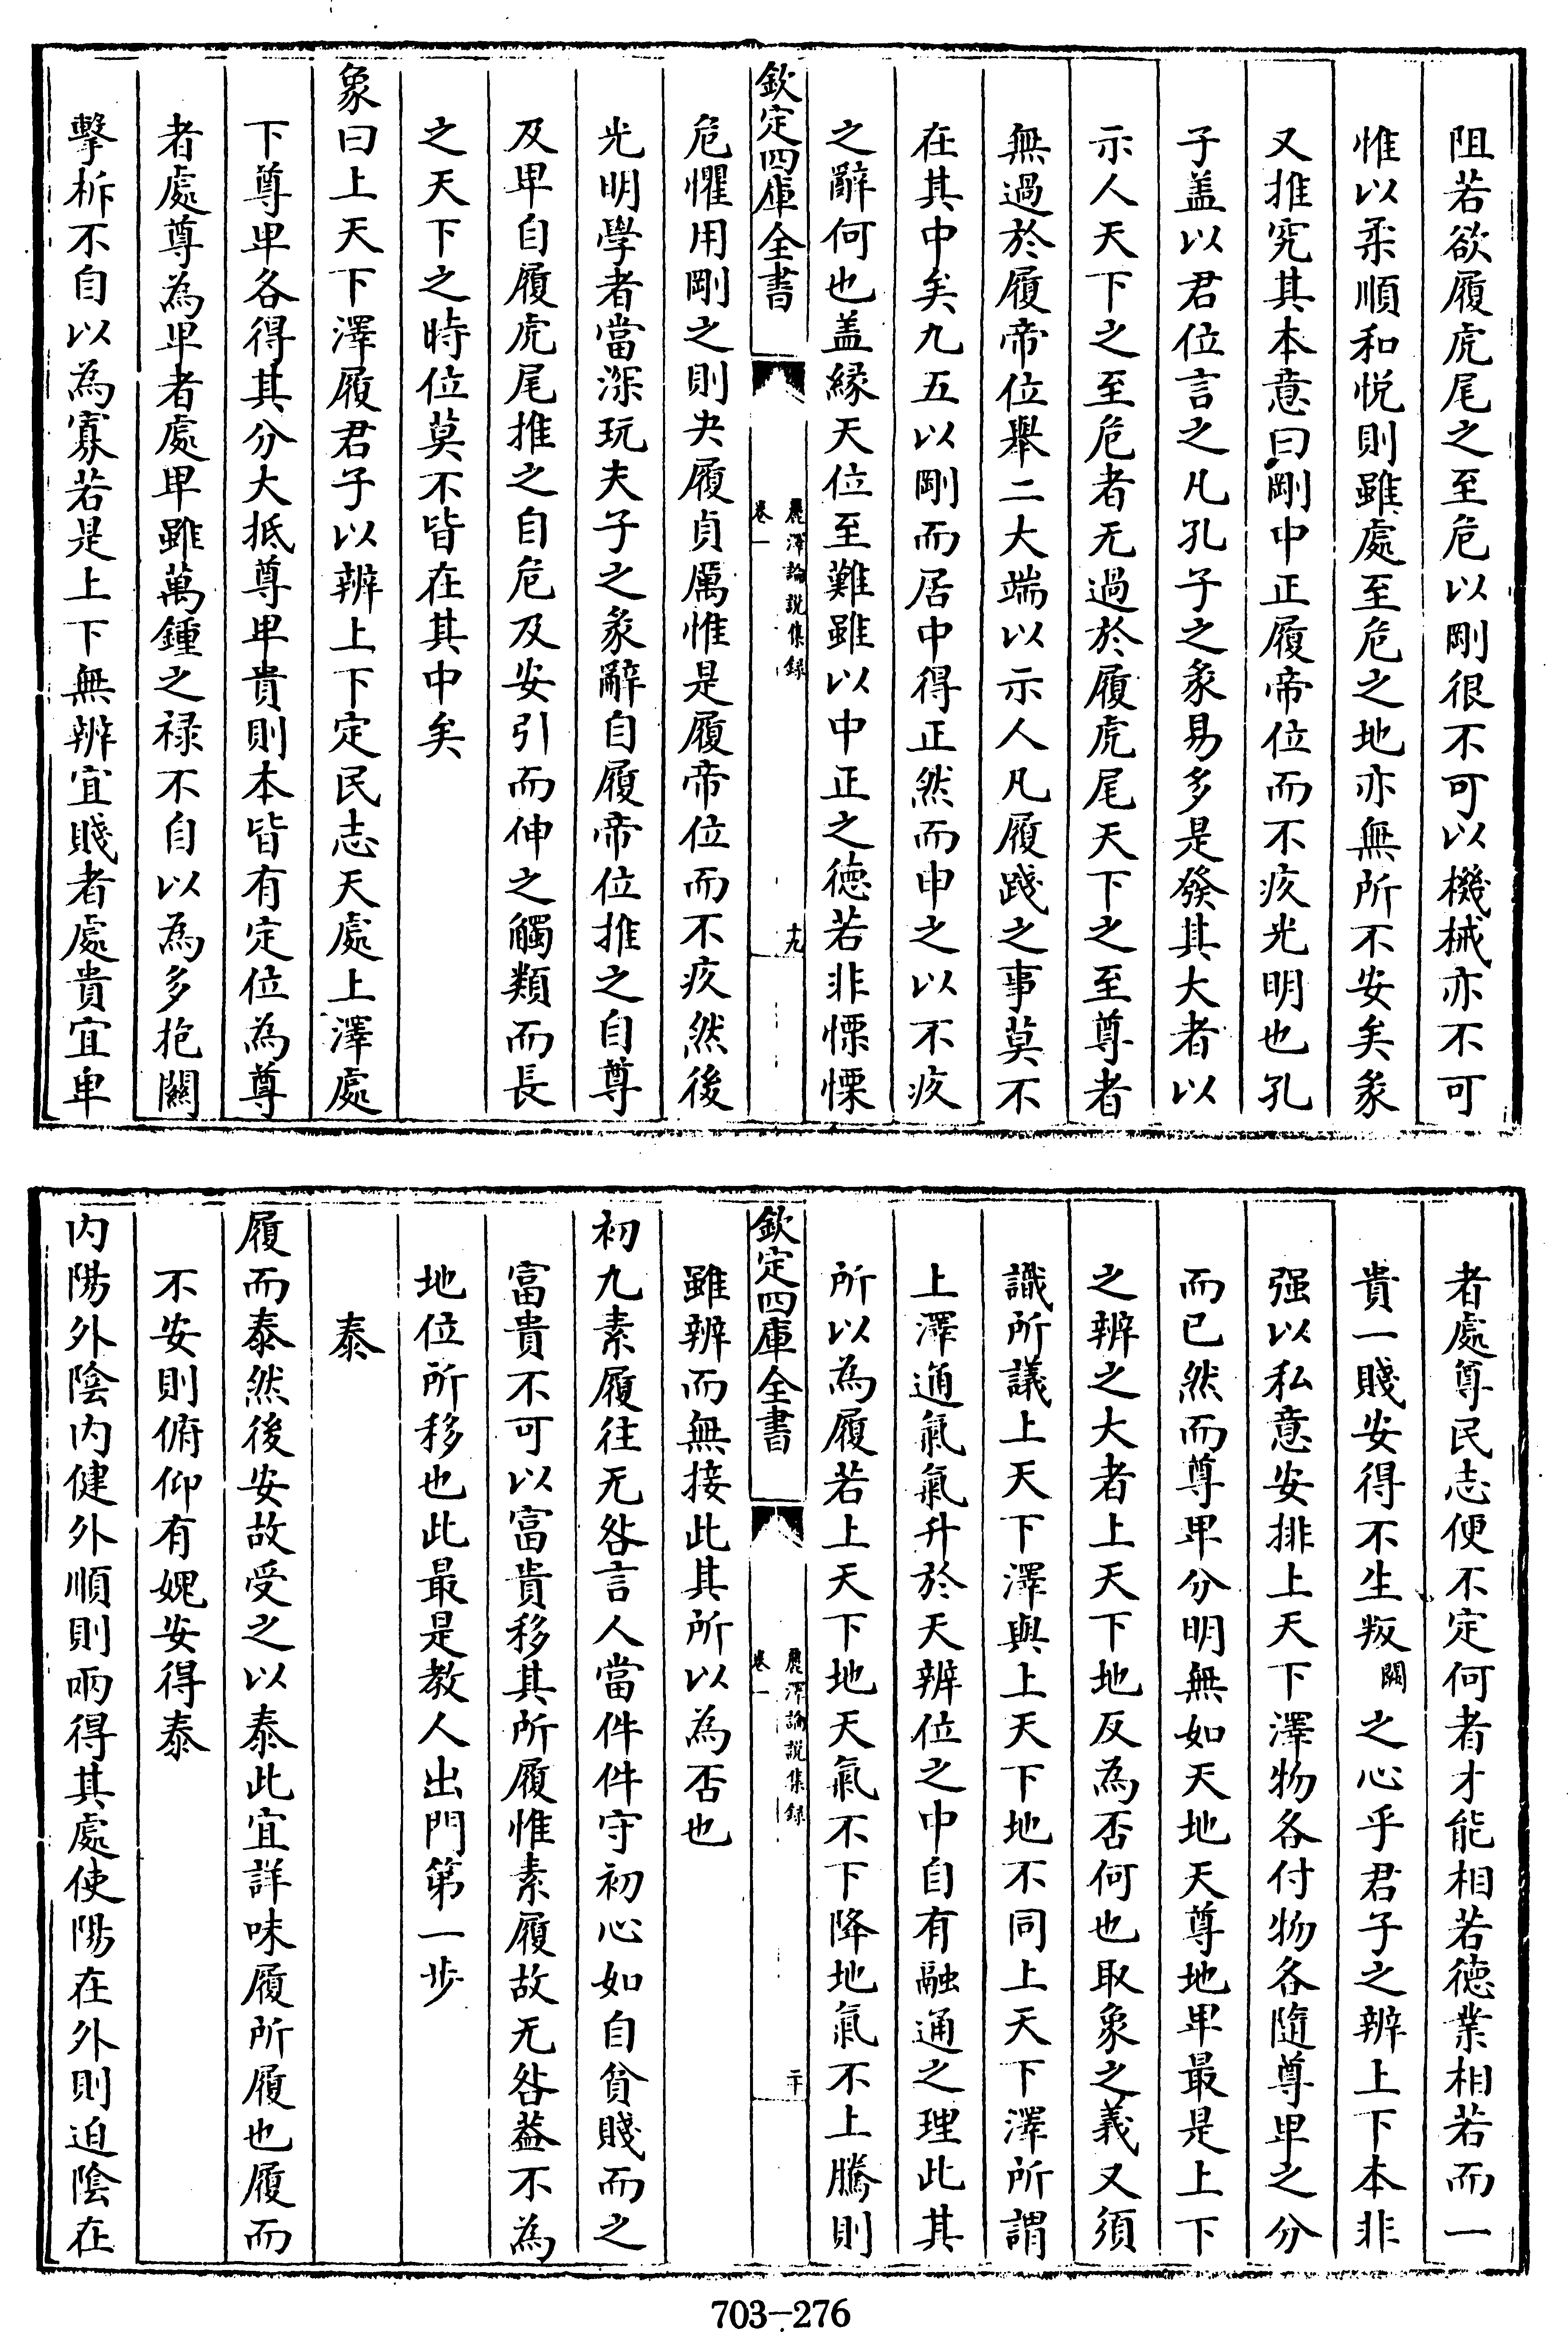 阻若欲履虎尾之至危以剛很不可以機械亦不可
惟以柔順和悦則雖處至危之地亦無所不安矣彖
又推究其本意曰剛中正履帝位而不疚光明也孔
子盖以君位言之凡孔子之彖易多是發其大者以
示人天下之至危者无過於履虎尾天下之至尊者
無過於履帝位舉二大端以示人凡履踐之事莫不
在其中矣九五以剛而居中得正然而申之以不疚
之辭何也盖緣天位至難雖以中正之徳若非慄慄
欽定四庫全書
麗澤論說集録
卷一
十九
危懼用剛之則夬履貞厲惟是履帝位而不疚然後
光明學者當深玩夫子之彖辭自履帝位推之自尊
及卑自履虎尾推之自危及安引而伸之觸類而長
之天下之時位莫不皆在其中矣
象曰上天下澤履君子以辨上下定民志天處上澤處
下尊卑各得其分大抵尊卑貴則本皆有定位為尊
者處尊為卑者處卑雖萬鍾之禄不自以為多抱關
擊柝不自以為寡若是上下無辨宜賤者處貴宜卑
者處尊民志便不定何者才能相若徳業相若而一
貴一賤安得不生叛闕之心乎君子之辨上下本非
强以私意安排上天下澤物各付物各隨尊卑之分
而已然而尊卑分明無如天地天尊地卑最是上下
之辨之大者上天下地反為否何也取象之義又須
識所議上天下澤與上天下地不同上天下澤所謂
上澤通氣氣升於天辨位之中自有融通之理此其
所以為履若上天下地天氣不下降地氣不上騰則
欽定四庫全書
麗澤論說集録
卷一
二十
雖辨而無接此其所以為否也
初九素履往无咎言人當件件守初心如自貧賤而之
富貴不可以富貴移其所履惟素履故无咎葢不為
地位所移也此最是教人出門第一步
泰
履而泰然後安故受之以泰此宜詳味履所履也履而
不安則俯仰有媿安得泰
内陽外陰内健外順則兩得其處使陽在外則迫陰在
703-276